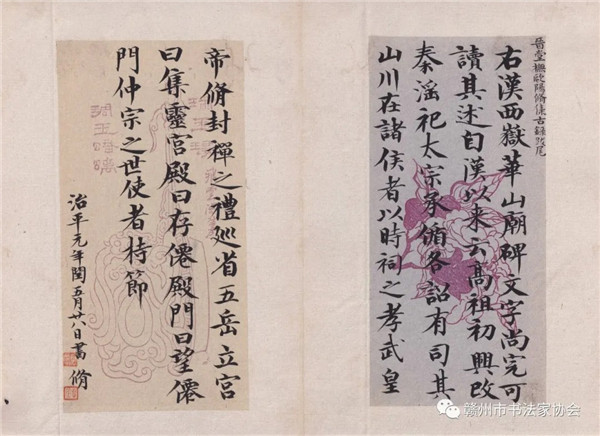 晉堂橅歐陽脩集古録跋尾
右漢西嶽華山廟碑文字尚完可
讀其述自漢以來云高祖初興改
秦滛祀太宗承循各詔有司其
山川在諸侯者以時祠之孝武皇
帝脩封禪之禮廵省五岳立宮
曰集靈宮殿曰存僊殿門曰望僊
門仲宗之世使者持節
治平元年閏五月廿八日書 脩
赣州市书法家协会